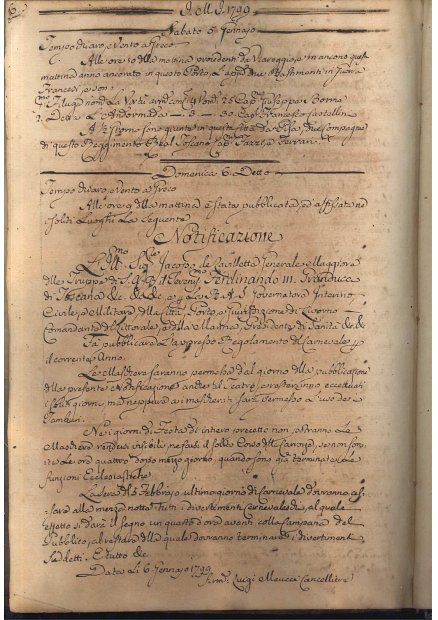 6 I.M.I. 1799
Sabato 5 Gennajo
Tempo chiaro, e Vento a Greco
Alle ore 10 della mattina provenienti da Viareggio in ancona questa
mattina anno ancorato in questo Porto, due Bastimenti
Francesi
1mo Filuga nom.ta La Virtù arm. Cap. Giuseppe Borma
2. Detta L'Endormeda 30 Cap. Francesco Castellin
A ½ giorno sono giunte in questa Città da Pisa due Compagnie
di questo Reggimento Real Toscano Cap. Ferrari
Domenica 6 Detto
Tempo chiaro, e Vento a Greco
Alle ore 9 della mattina è stata pubblicata, ed affissata ne
soliti Luoghi La seguente
Notificazione
L'Ill.mo Sig.re Jacopo de Lavillette Generale Maggiore
delle Truppe di S.A.R. il Seren.mo Ferdinando III. Granduca
di Toscana &c. &c. &c. e per La R.A.S. Governatore Interino
Civile, e Militare della Città, Porto, e Giurisdizione di Livorno
Comandante del Littorale, e della Marina, Presidente di Sanità &c. &c.
Fa pubblicare L'appresso Regolamento di Carnevale per
il corrente Anno.
Le Maschere saranno permesse dal giorno della pubblicazione
della presente Notificazione anche al Teatro, e Festini eccettuati
i soliti giorni, ma neppure ai mascherati sarà permesso l'uso de
Tamburi.
Nei giorni di Festa di intiero precetto non potranno Le
Maschere rendersi visibili nè farsi il solito Corso delle Carrozze, se non sono
Le ore quattro dopo mezzo giorno, quando sono già terminate Le
funzioni Ecclesiastiche
La sera de 5 Febbrajo ultimo giorno di Carnevale dovranno ces-
sare alla mezza notte tutti i divertimenti Carnevaleschi, al quale
effetto si darà il segno un quarto d'ora avanti colla Campana del
Pubblico, al restare della quale dovranno terminare i divertimenti
suddetti. E tutto &c.
Data Li 6 Gennajo 1799
Firm. Luigi Meucci Cancelliere